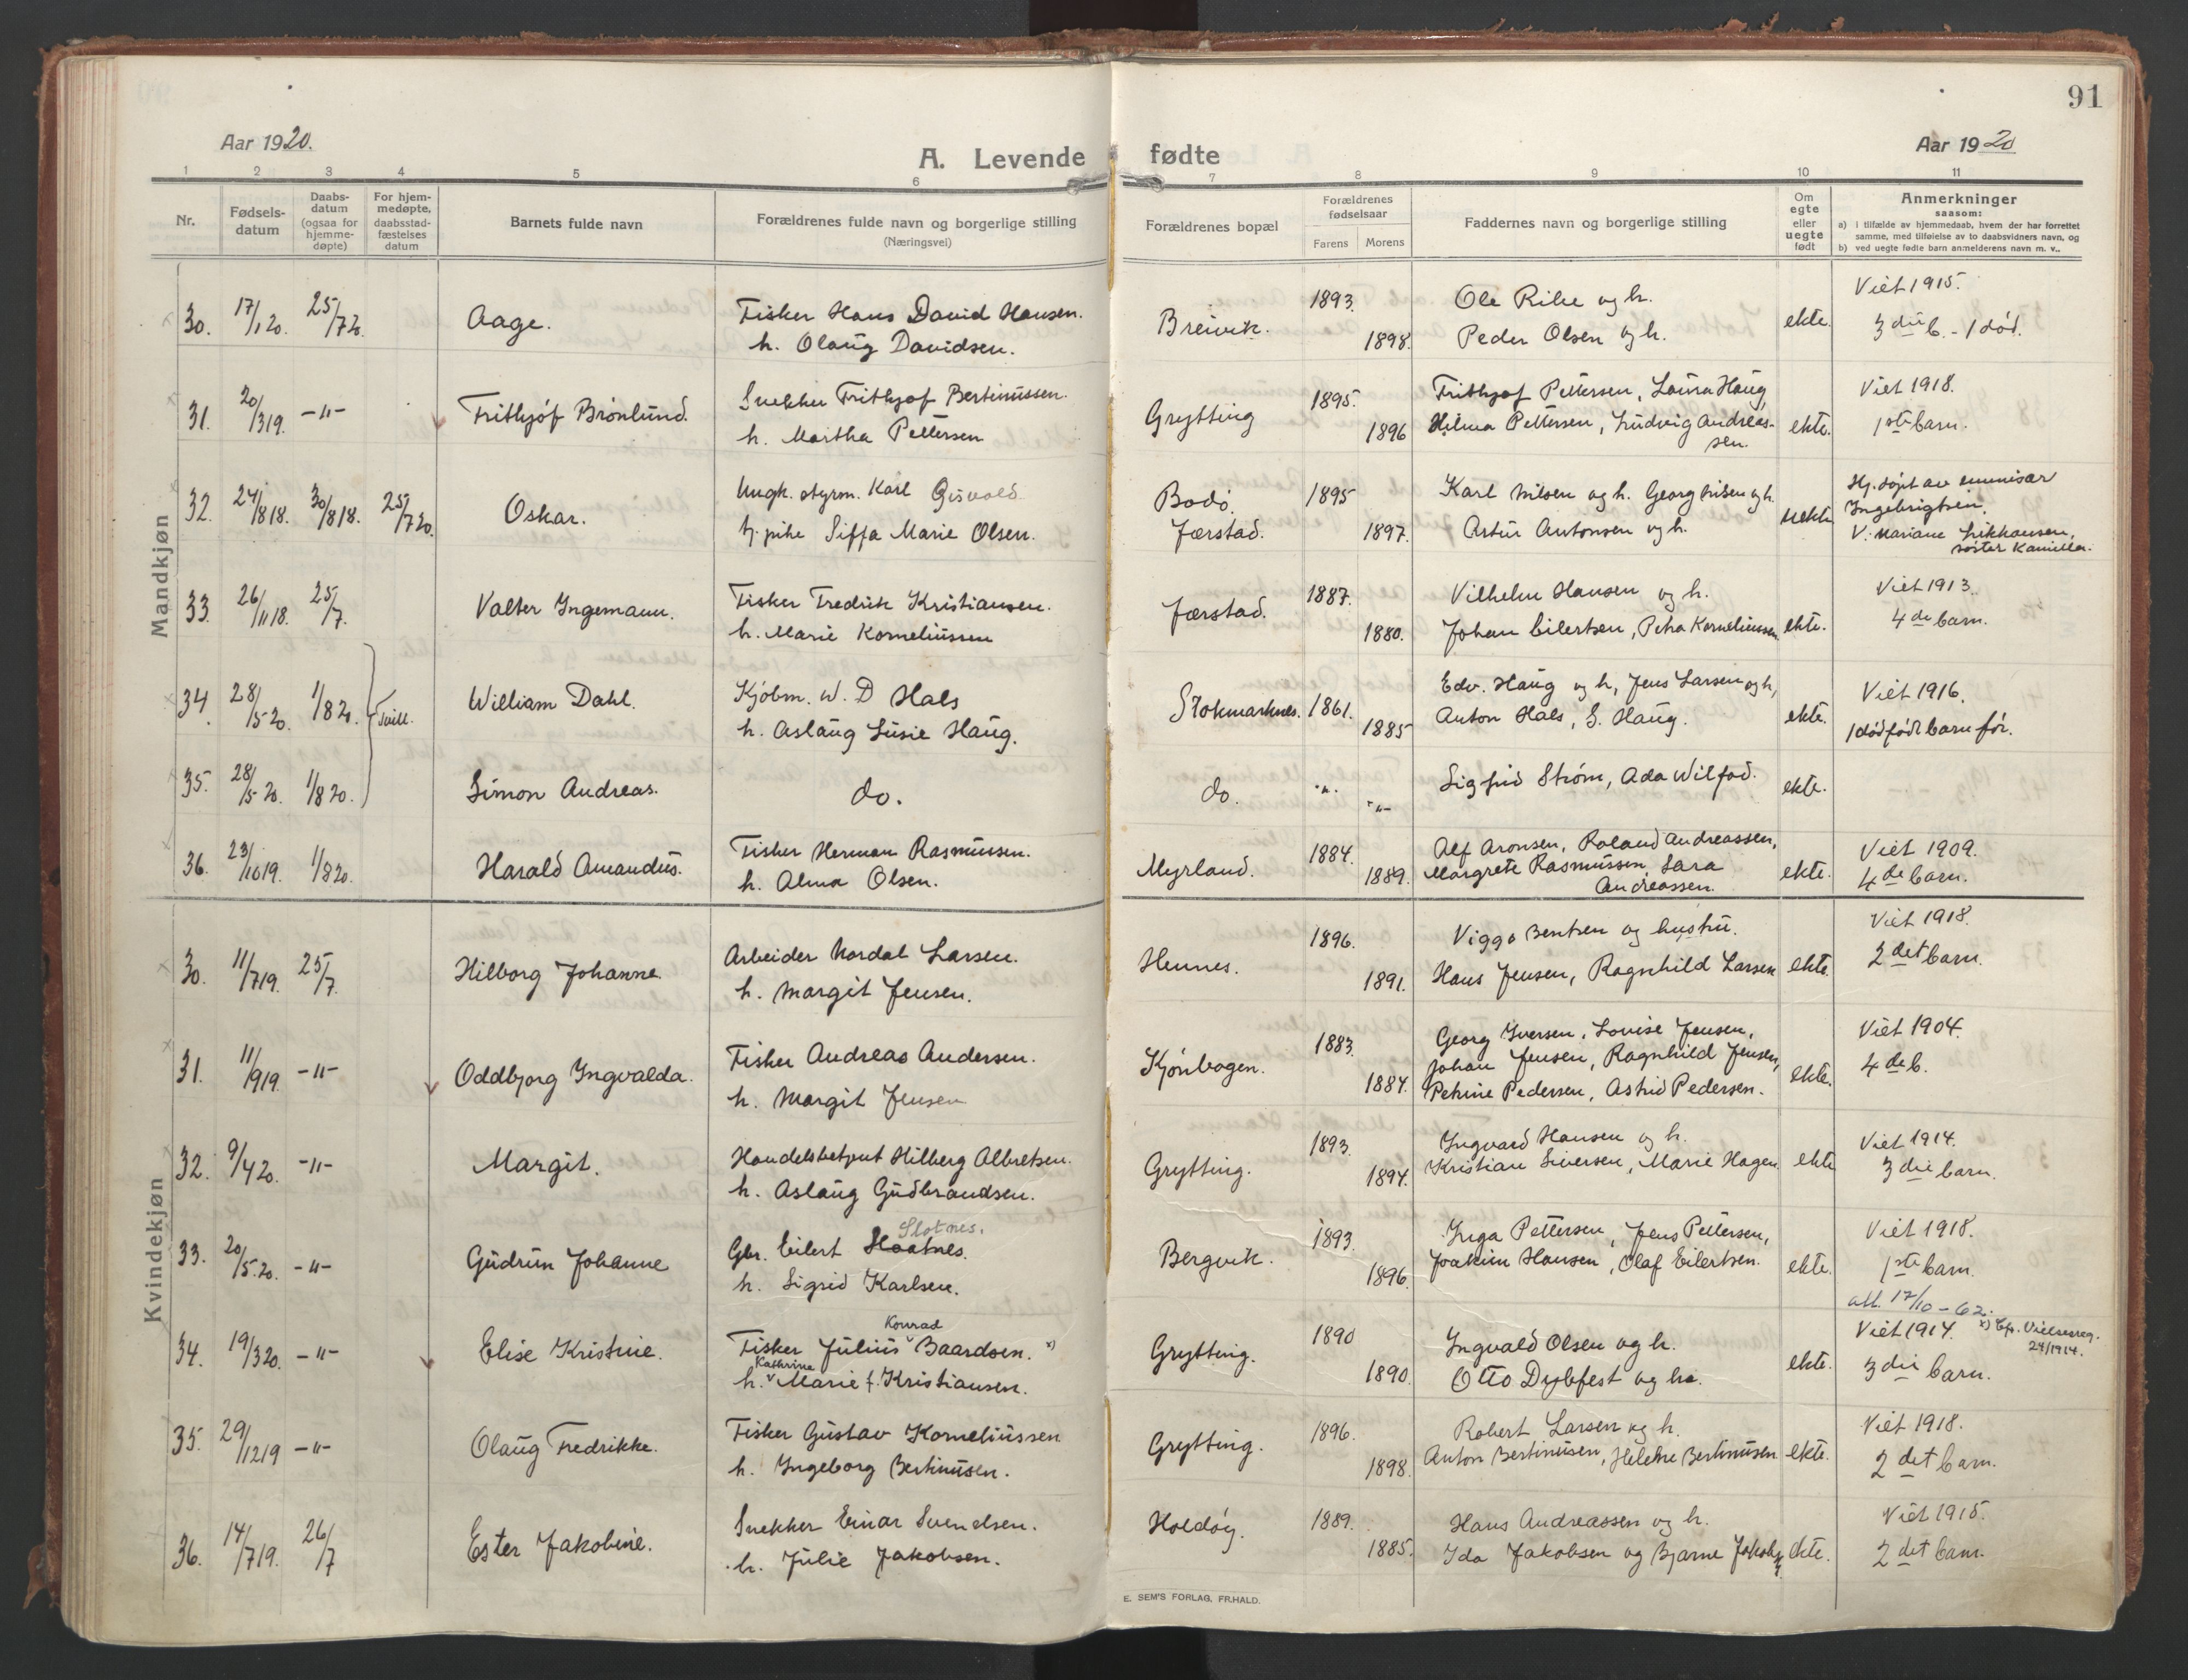 91
Aar 1920.
A. Levende fødte
Aar 1920
1 2 3 4 5 6 7 8 9 10 11
Nr.
Fødsels-
datum
Daabs-
datum
(ogsaa for
hjemme-
døpte)
For hjem-
medøpte,
daabsstad-
fæstelses
datum
Barnets fulde navn
Forældrenes fulde navn og borgerlige stilling
(Næringsvei)
Forældrenes bopæl
Forældrenes
fødselsaar
Farens Morens
Faddernes navn og borgerlige stilling
Om
egte
eller
uegte
født
Anmerkninger
saasom:
a) i tilfælde av hjemmedaab, hvem der har forrettet
samme, med tilføielse av to daabsvidners navn, og
b) ved uegte fødte barn anmelderens navn m. v..
Mandkjøn
30. 17/1 20. 25/7 20. Aage. Fisker Hans David Hansen. Breivik. 1893. Ole Rike og h. ekte. Viet 1915.
h. Olaug Davidsen. 1898. Peder Olsen og h. 3die b. - 1 død.
31. 20/3 19. -"- Frithjof Brønlund. Snekker Frithjof Bertinussen. Grytting 1895. Frithjof Pettersen, Laura Haug, ekte. Viet 1918.
h. Martha Pettersen 1896 Hilma Pettersen, Ludvig Andreas-
sen. 1ste barn.
32. 24/8 18. 30/8 18. 25/7 20. Oskar. Ungk. styrm. Karl Gisvold Bodø. 1895 Karl Nilsen og h. Georg Nilsen og h. uekte Hj. døpt av emmisær
Ingebrigtsen.
tj. pike Siffa Marie Olsen. Jærstad. 1897. Artur Antonsen og h. V. Mariane
søster Kamilla.
33. 26/11 18. 25/7. Valter Ingemann. Fisker Fredrik Kristiansen. Jærstad. 1887. Vilhelm Hansen og h. ekte. Viet 1913.
h. Marie Korneliussen 1880. Johan Eilertsen, Petra Korneliussen 4de barn.
34. 28/5 20. 1/8 20. Tvill. William Dahl. Kjøbm. W. D Hals Stokmarknes. 1861. Edv. Haug og h, Jens Larsen og h, ekte. Viet 1916.
h. Aslaug Lusie Haug. 1885 Anton Hals, S. Haug. 1 dødfødt barn før.
35. 28/5 20. 1/8 20. Simon Andreas. do. do. -"- -"- Sigfrid Strøm, Ada Wilfad. ekte.
36. 23/10 19. 1/8 20. Harald Amandus. Fisker Herman Rasmussen. Myrland. 1884. Alf Aronsen, Roland Andreassen, ekte. Viet 1909.
h. Alma Olsen. 1889. Margrete Rasmussen, Sara
Andreassen. 4de barn.
Kvindekjøn
30. 11/7 19. 25/7. Hilborg Johanne. Arbeider Nordal Larsen. Hennes. 1896. Viggo Bentsen og hustru. ekte. Viet 1918.
h. Margit Jensen. 1891. Hans Jensen, Ragnhild Larsen 2det barn.
31. 11/9 19. -"- Oddbjorg Ingvalda. Fisker Andreas Andersen. Kjønbogen. 1883. Georg Iversen, Lovise Jensen, ekte. Viet 1904.
Johan Jensen, Ragnhild Jensen, 4de b.
h. Margit Jensen 1884. Petrine Pedersen, Astrid Pedersen.
32. 9/4 20. -"- Margit. Handelsbetjent Hilberg Albretsen. Grytting. 1893. Ingvard Hansen og h. ekte Viet 1914.
h. Aslaug Gudbrandsen. 1894. Kristian Siversen, Marie Hagen. 3die barn.
33. 20/5 20. -"- Gudrun Johanne Gbr. Eilert Slotnes. Bergvik. 1893. Inga Pettersen, Jens Pettersen, ekte. Viet 1918.
h. Sigrid Karlsen. 1896. Joakim Hansen, Olaf Eilertsen. 1ste barn.
att. 17/10-62.
34. 19/3 20. -"- Elise Kristine. Fisker Julius Konrad Baardsen. x) Grytting. 1890 Ingvald Olsen og h. ekte. Viet 1914. x) Cfr. Vielsesreg.
24/1914.
h. Kathrine Marie f. Kristiansen. 1890. Otto Dybfest og h. 3die barn.
35. 29/12 19 -"- Olaug Fredrikke. Fisker Gustav Korneliussen Grytting. 1896. Robert Larsen og h. ekte. Viet 1918.
h. Ingeborg Bertinusen. 1898. Anton Bertinusen, Helene Bertinusen 2det barn.
36. 14/7 19. 26/7 Ester Jakobine. Snekker Einar Svendsen. Holdøy. 1889. Hans Andreassen og h. ekte. Viet 1915.
h. Julie Jakobsen. 1885. Ida Jakobsen og Bjarne Jakobs. 2det barn.
E. SEM'S FORLAG, FR.HALD.